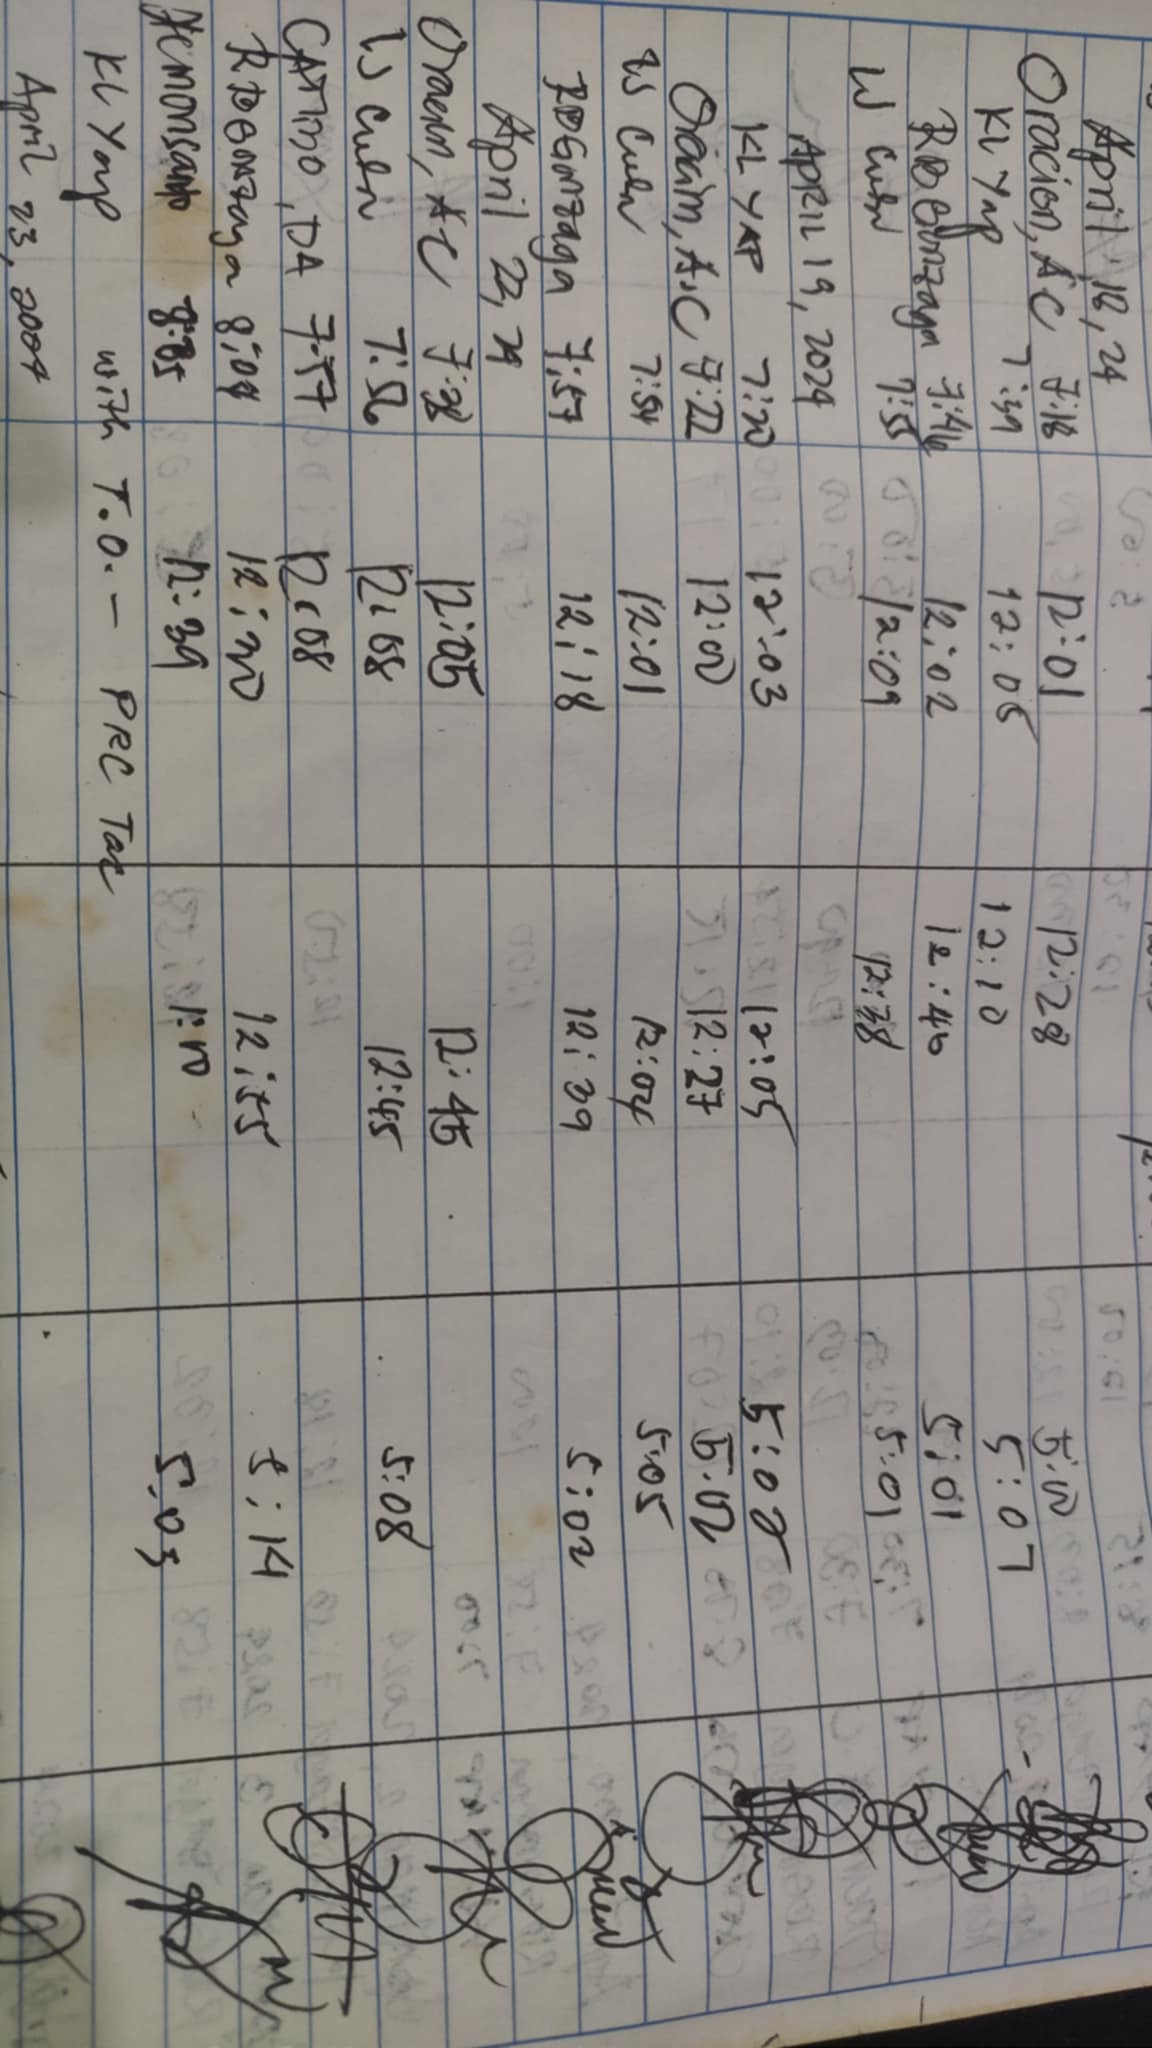 April 18, 24
Oracion, AC 7:18 12:01 12:28 5:00
KL Yap 7:39 12:05 12:10 5:07
RDGonzaga 7:46 12:02 12:40 5:01
W Cuen 7:55 12:09 12:38 5:01
APRIL 19, 2024
KL YAP 7:20 12:03 12:05 5:00
Oracion, A.C 7:22 12:00 12:27 5:02
W Cuen 7:54 12:01 12:04 5:05
RDGonzaga 7:57 12:18 12:39 5:02
April 22, 24
Oracion, AC 7:38 12:05 12:45
W Cuen 7:56 12:08 12:45 5:08
CATINO, DA 7:57 12:08
RDGonzaga 8:04 12:20 12:55 5:14
12:39 5:03
KL Yap with T.O. - PRC Tac
April 23, 2024